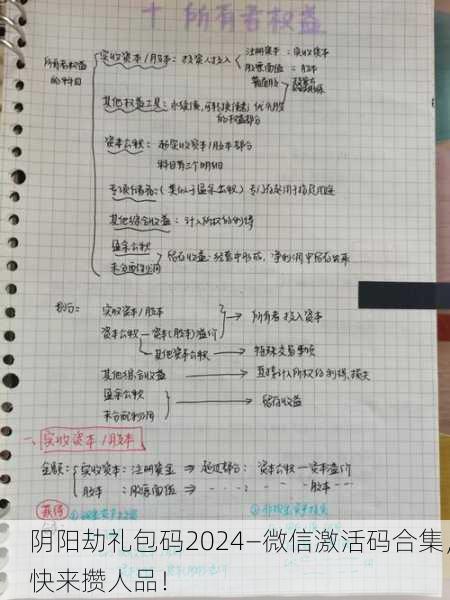 十 所有者权益
所有者权益
的科目
实收资本/股本：投资人投入
注册资本：实收资本
股票面值：股本
其他权益工具：永续债，可转换债，优先股
的权益部分
资本公积：超实收资本/股本部分
科目有三个明细
专项储备：(类似于盈余公积)专门在使用于指定用途
其他综合收益：计入所有权的利得
盈余公积
未分配利润
留存收益：经营中形成，净利润中留存出来
划分：
实收资本/股本
资本公积—资本(股本)溢价
所有者投入资本
其他资本公积
特殊交易事项
其他综合收益
直接计入所有权的利得、损失
盈余公积
未分配利润
留存收益
一、实收资本/股本
金额：
实收资本：注册资金 ⇒ 超过部分：资本公积—资本溢价
股本：股票面值 ⇒
获得
阴阳劫礼包码2024—微信激活码合集，
快来攒人品！